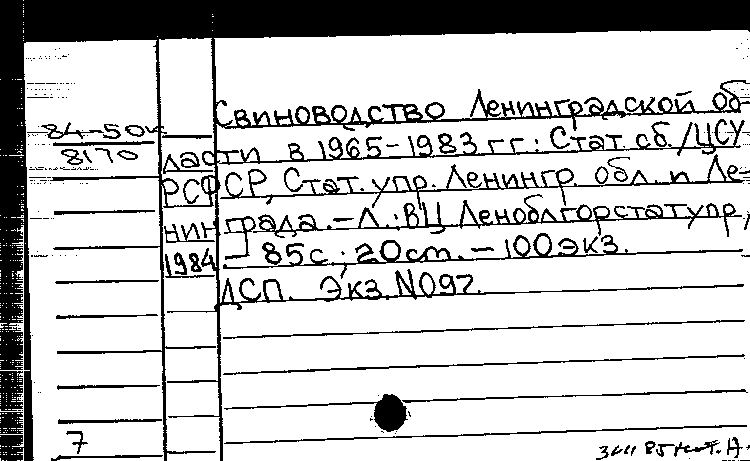 Свиноводство Ленинградской об-
84-50к
8170
ласти в 1965-1983 гг.: Стат. сб. /ЦСУ
РСФСР, Стат. упр. Ленингр. обл. и Ле-
нинграда. - Л.: ВЦ Леноблгорстатупр,
1984. - 85с.; 20см. - 100экз.
ДСП. Экз. N097.
7